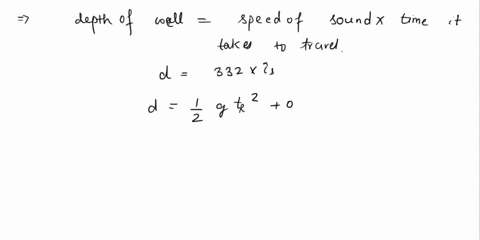 ⇒ depth of well = speed of sound x time it
takes to travel.
d = 332 x ?s
d = 1/2 g t² + 0